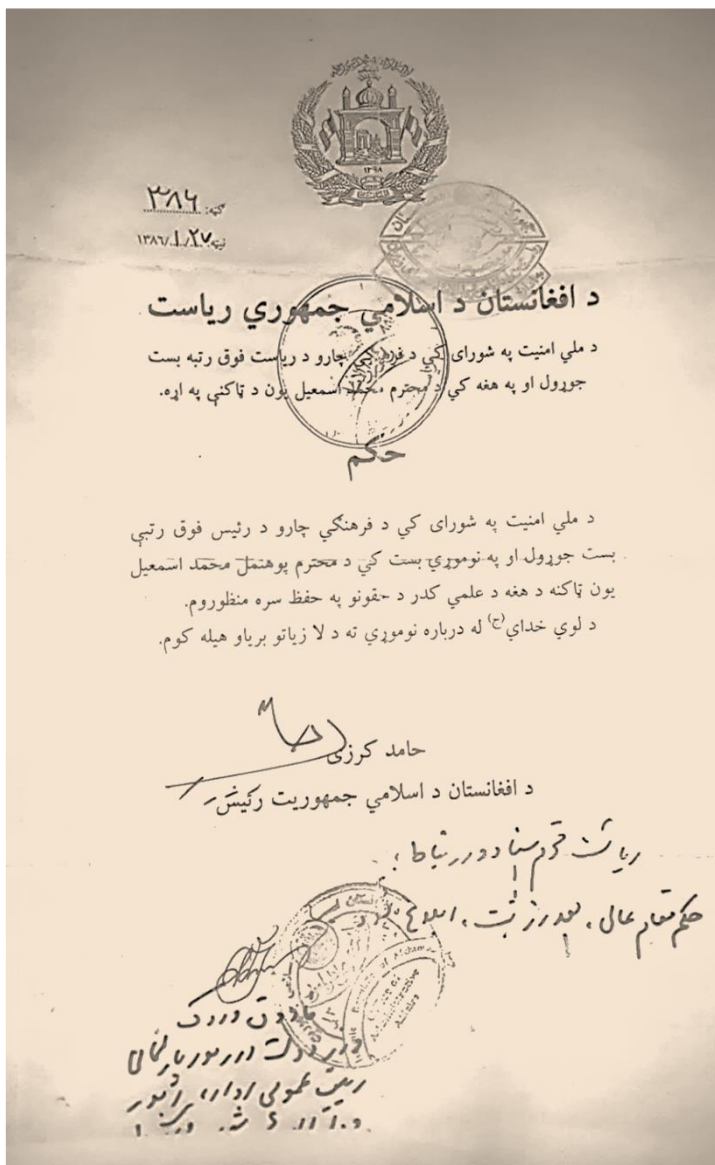 ۱۲۹۸
ګڼه: ۳۸۶
نېټه ۱۳۸۶/۱/۲۷
د افغانستان د اسلامي جمهوري رياست
د ملي امنيت په شورای کي د فرهنګي چارو د رياست فوق رتبه بست
جوړول او په هغه کي د محترم محمد اسمعيل يون د ټاکني په اړه.
حکم
د ملي امنيت په شورای کي د فرهنګي چارو د رئيس فوق رتبې
بست جوړول او په نوموړي بست کي د محترم پوهنمل محمد اسمعيل
يون ټاکنه د هغه د علمي کدر د حقونو په حفظ سره منظوروم.
د لوي خدای(ج) له درباره نوموړي ته د لا زياتو برياو هيله کوم.
حامد کرزی
د افغانستان د اسلامي جمهوريت رئيس
حکم مقام عالی، بعد از ثبت، ابلاغ
فاروق وردک
رئيس عمومی اداره امور